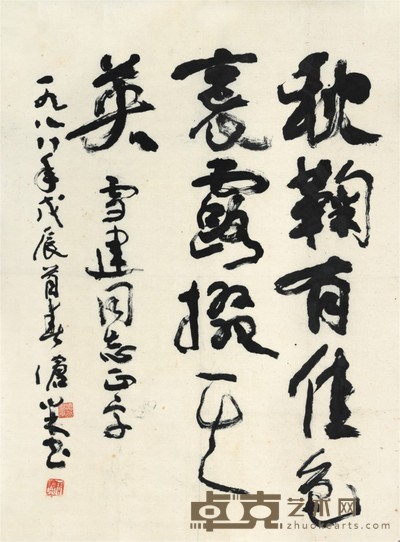 秋鞠有佳色
裛露掇其
英
雪建同志正字
一九八八年戊辰首春 书
卓克艺术网
zhuokearts.com